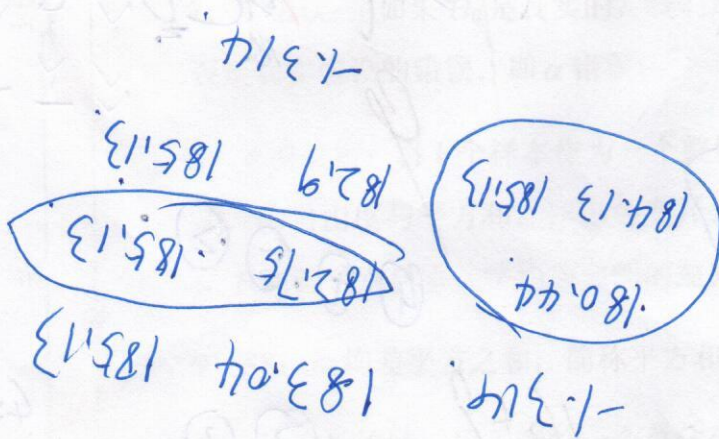 -1.314 183.04 185.13
180.44 182.75 185.13
184.13 185.13 182.9 185.13
-1.314